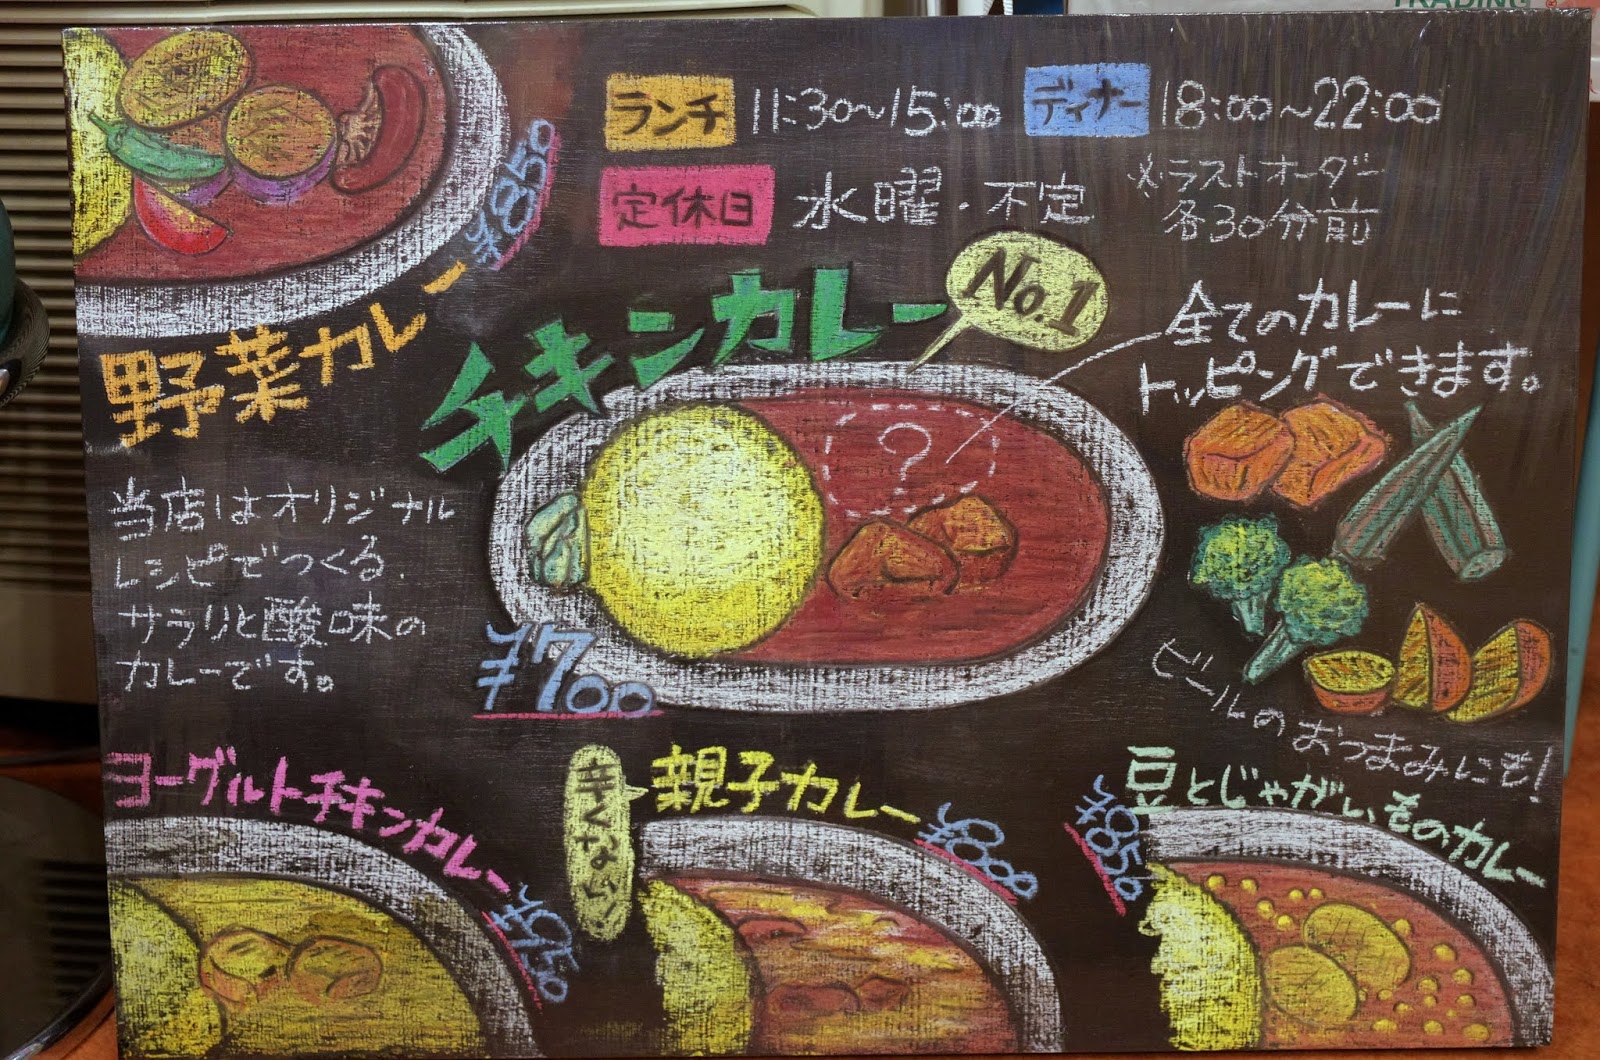 TRADING
®
ランチ 11:30~15:00 ディナー 18:00~22:00
定休日 水曜・不定
※ラストオーダー
各30分前
¥850
野菜カレー
チキンカレー
No.1
全てのカレーに
トッピングできます。
?
当店はオリジナル
レシピでつくる
サラリと酸味の
カレーです。
¥700
ビールのおつまみにも!
ヨーグルトチキンカレー
辛くない!
親子カレー
¥800
豆とじゃがいものカレー
¥850